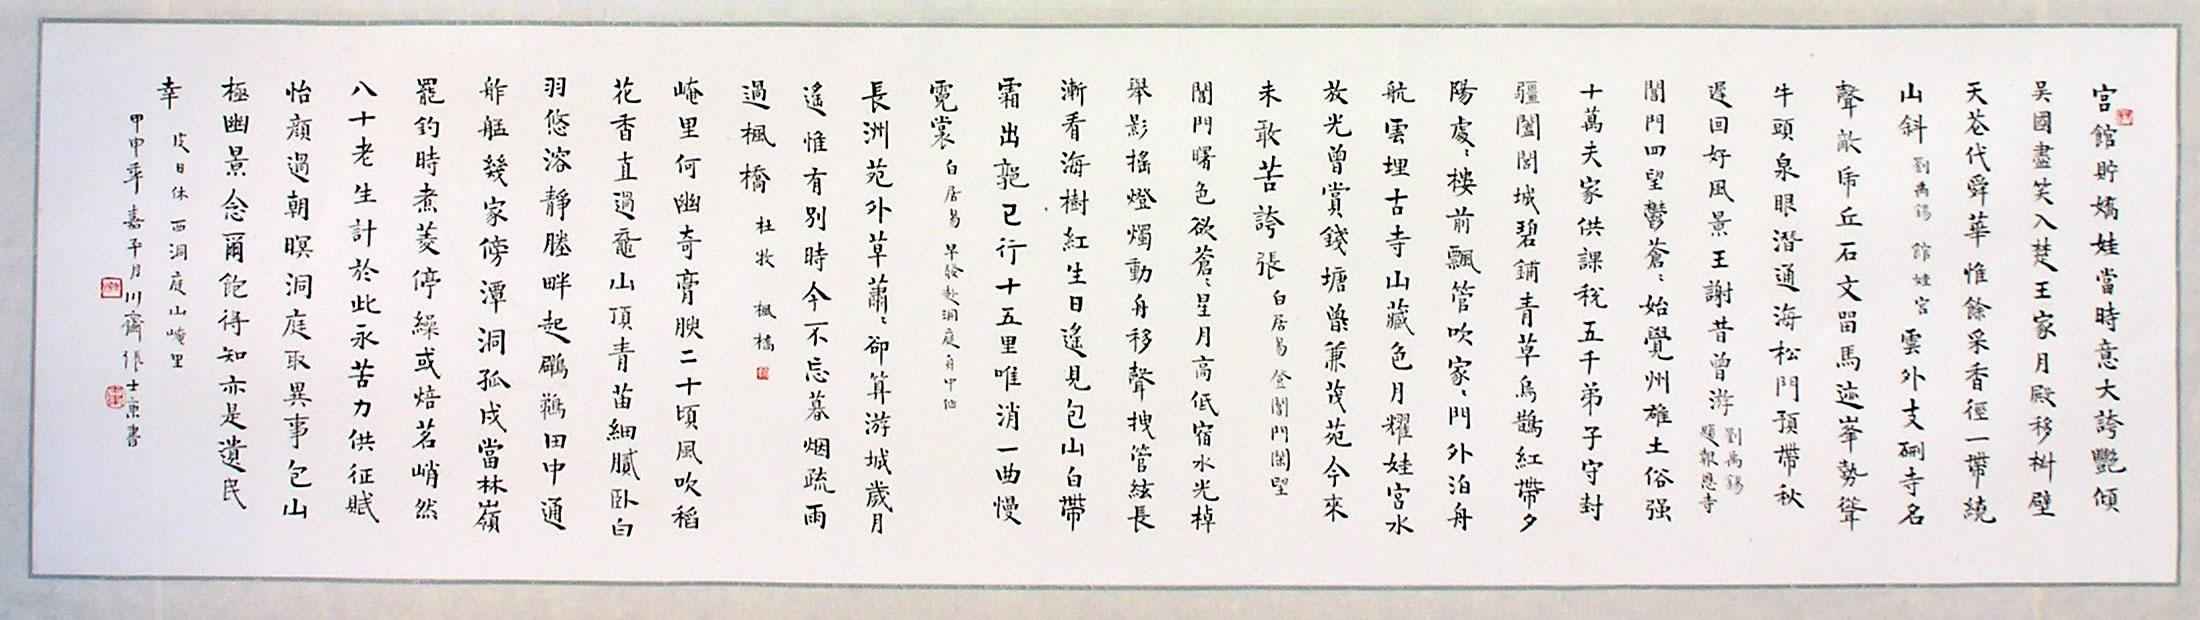 宮館貯嬌娃當時意大誇艷傾
吳國盡笑入楚王家月殿移椒壁
天花代舜華惟餘采香徑一帶繞
山斜 劉禹錫 館娃宮 雲外支硎寺名
聲敵虎丘石文留馬迹峯勢聳
牛頭泉眼潛通海松門預帶秋
遲回好風景王謝昔曾游 劉禹錫 題報恩寺
閶門四望鬱蒼〻始覺州雄土俗强
十萬夫家供課稅五千弟子守封
疆闔閭城碧鋪青草烏鵲紅帶夕
陽處〻樓前飄管吹家〻門外泊舟
航雲埋古寺山藏色月耀娃宮水
放光曾賞錢塘兼茂苑今來
未敢苦誇張 白居易 登閶門閑望
閶門曙色欲蒼〻星月高低宿水光棹
舉影搖燈燭動舟移聲拽管絃長
漸看海樹紅生日遙見包山白帶
霜出郭已行十五里唯消一曲慢
霓裳 白居易 早發赴洞庭舟中作
長洲苑外草蕭〻卻算游城歲月
遙惟有別時今不忘暮烟疏雨
過楓橋 杜牧 楓橋
崦里何幽奇膏腴二十頃風吹稻
花香直過龜山頂青苗細膩臥白
羽悠溶靜塍畔起鸊鵜田中通
舴艋幾家傍潭洞孤戍當林嶺
罷釣時煮菱停繰或焙茗峭然
八十老生計於此永苦力供征賦
怡顏過朝暝洞庭取異事包山
極幽景念爾飽得知亦是遺民
幸 皮日休 西洞庭山崦里
甲申年嘉平月川齋張士書